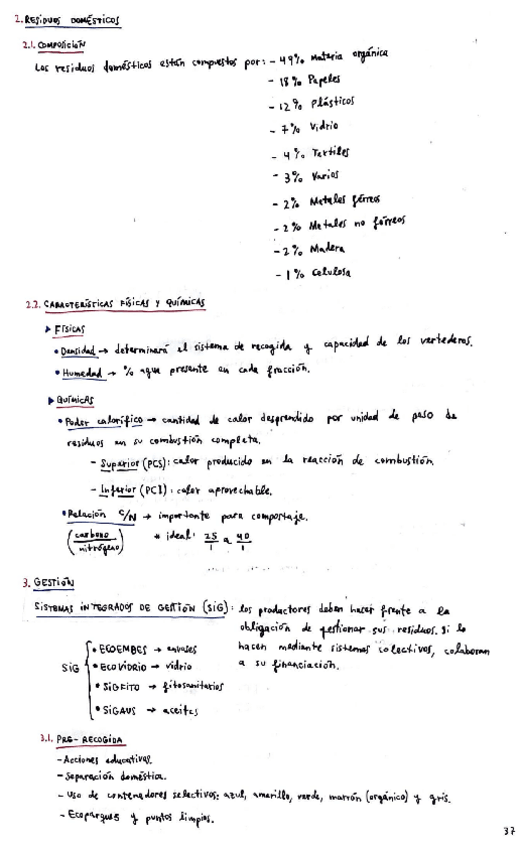 2. RESIDUOS DOMÉSTICOS
2.1. COMPOSICIÓN
Los residuos domésticos están compuestos por: - 49% Materia orgánica
- 18% Papeles
- 12% Plásticos
- 7% Vidrio
- 4% Textiles
- 3% Varios
- 2% Metales férreos
- 2% Metales no férreos
- 2% Madera
- 1% Celulosa
2.2. CARACTERÍSTICAS FÍSICAS Y QUÍMICAS
▸ FÍSICAS
• Densidad → determinará el sistema de recogida y capacidad de los vertederos.
• Humedad → % agua presente en cada fracción.
▸ QUÍMICAS
• Poder calorífico → cantidad de calor desprendido por unidad de peso de
residuos en su combustión completa.
- Superior (PCS): calor producido en la reacción de combustión
- Inferior (PCI): calor aprovechable.
• Relación C/N → importante para compostaje.
(carbono/nitrógeno) * ideal: 25/1 a 40/1
3. GESTIÓN
SISTEMAS INTEGRADOS DE GESTIÓN (SIG): los productores deben hacer frente a la
obligación de gestionar sus residuos. Si lo
hacen mediante sistemas colectivos, colaboran
a su financiación.
SIG
• ECOEMBES → envases
• ECOVIDRIO → vidrio
• SIGFITO → fitosanitarios
• SIGAUS → aceites
3.1. PRE-RECOGIDA
- Acciones educativas.
- Separación doméstica.
- Uso de contenedores selectivos: azul, amarillo, verde, marrón (orgánico) y gris.
- Ecoparques y puntos limpios.
37